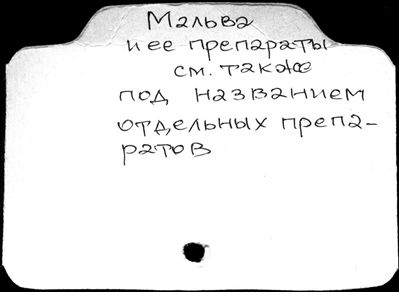 Мальва
и ее препараты
см. также
под названием
отдельных препа-
ратов